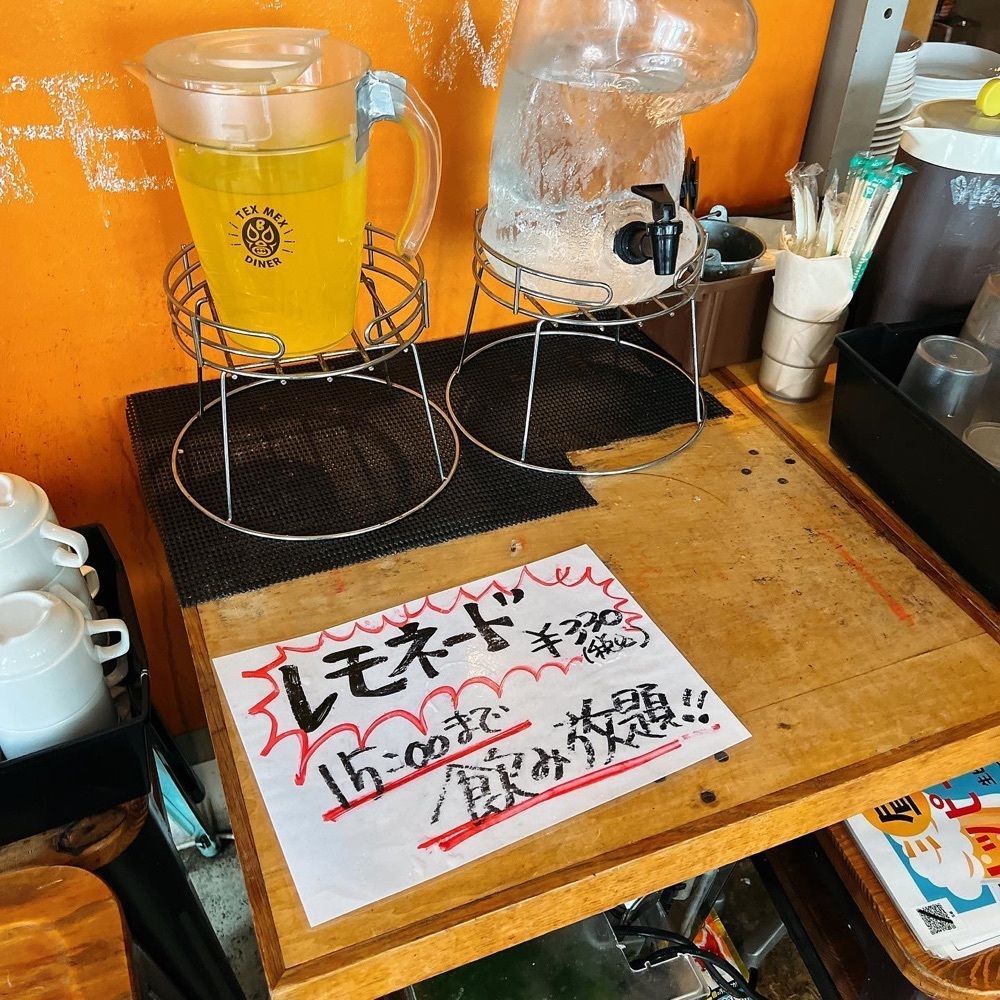 TEX MEX
DINER
レモネード
¥330
(税込)
15:00まで
飲み放題!!